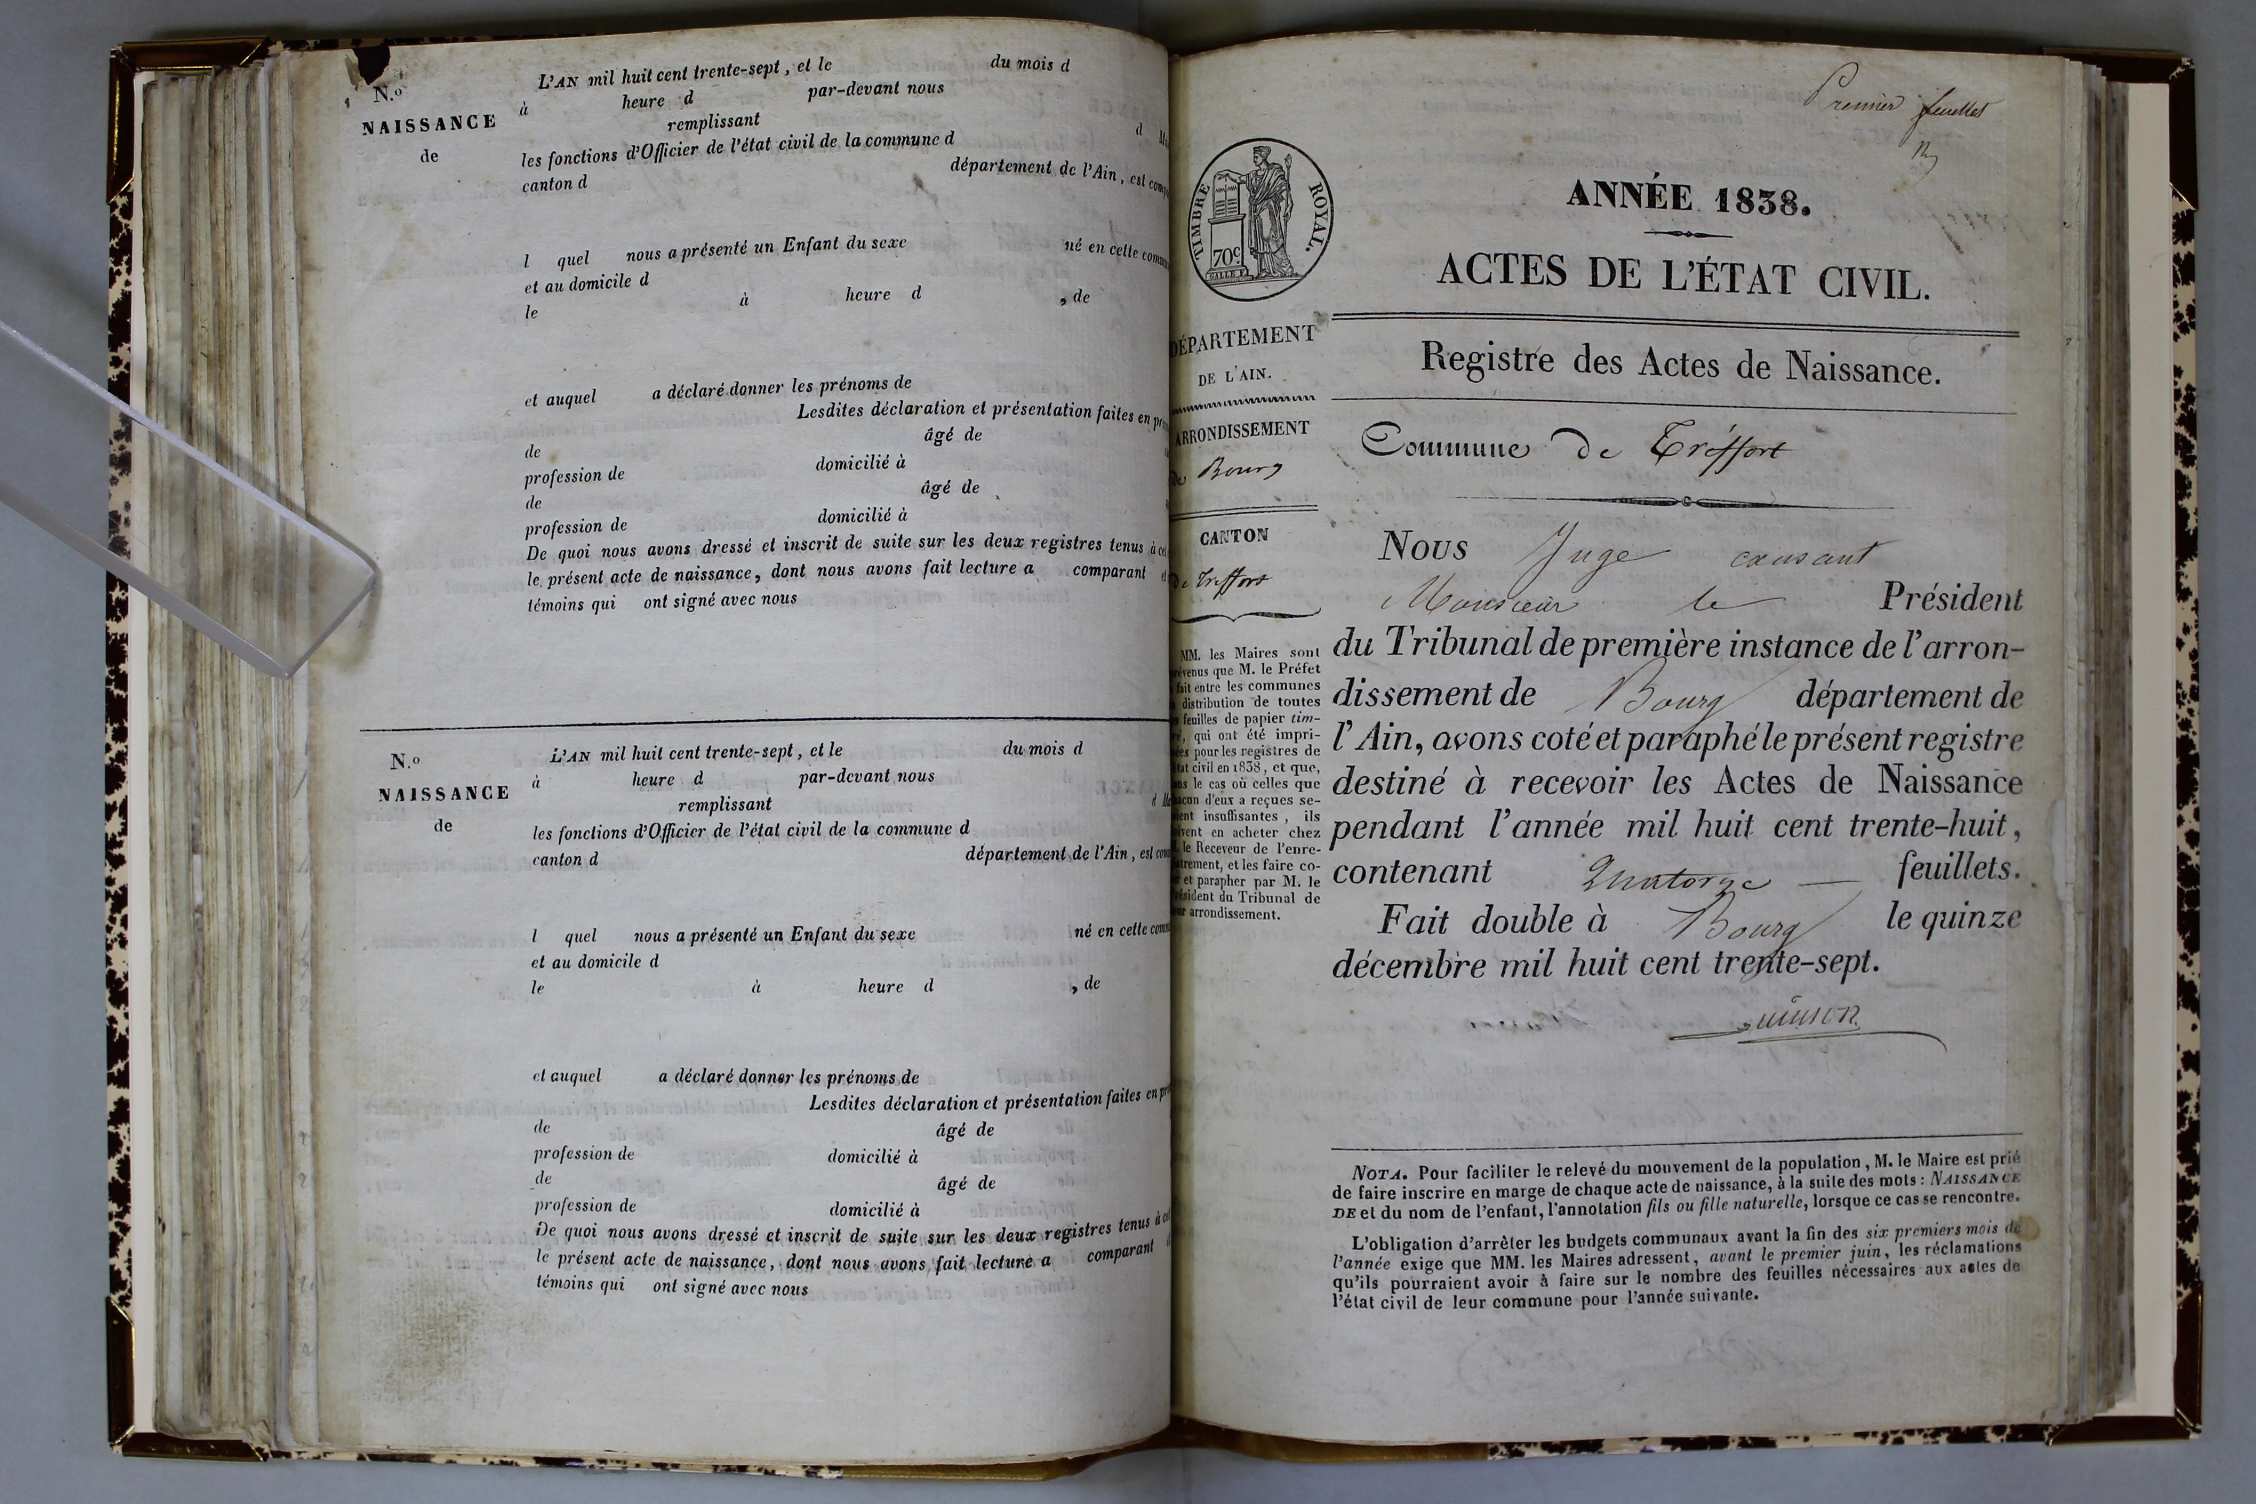 N.º
NAISSANCE
de
L'AN mil huit cent trente-sept, et le du mois d
à heure d par-devant nous
remplissant d
les fonctions d'Officier de l'état civil de la commune d
canton d département de l'Ain, est
l quel nous a présenté un Enfant du sexe né en cette
et au domicile d
le à heure d , de
et auquel a déclaré donner les prénoms de
Lesdites déclaration et présentation faites en
de âgé de
profession de domicilié à
de âgé de
profession de domicilié à
De quoi nous avons dressé et inscrit de suite sur les deux registres tenus à
le présent acte de naissance, dont nous avons fait lecture a comparant
témoins qui ont signé avec nous
N.º
NAISSANCE
de
L'AN mil huit cent trente-sept, et le du mois d
à heure d par-devant nous
remplissant d
les fonctions d'Officier de l'état civil de la commune d
canton d département de l'Ain, est
l quel nous a présenté un Enfant du sexe né en cette
et au domicile d
le à heure d , de
et auquel a déclaré donner les prénoms de
Lesdites déclaration et présentation faites en
de âgé de
profession de domicilié à
de âgé de
profession de domicilié à
De quoi nous avons dressé et inscrit de suite sur les deux registres tenus à
le présent acte de naissance, dont nous avons fait lecture a comparant
témoins qui ont signé avec nous
Premier feuillet
TIMBRE ROYAL.
70c
ANNÉE 1838.
ACTES DE L'ÉTAT CIVIL.
DÉPARTEMENT
DE L'AIN.
ARRONDISSEMENT
de Bourg
CANTON
de Treffort
MM. les Maires sont
prévenus que M. le Préfet
fait entre les communes
distribution de toutes
feuilles de papier tim-
qui ont été impri-
pour les registres de
civil en 1838, et que,
le cas où celles que
d'eux a reçues se-
insuffisantes, ils
en acheter chez
le Receveur de l'enre-
et les faire co-
et parapher par M. le
Président du Tribunal de
arrondissement.
Registre des Actes de Naissance.
Commune de Tréffort
Nous Juge
Monsieur le Président
du Tribunal de première instance de l'arron-
dissement de Bourg département de
l'Ain, avons coté et paraphé le présent registre
destiné à recevoir les Actes de Naissance
pendant l'année mil huit cent trente-huit,
contenant Quatorze feuillets.
Fait double à Bourg le quinze
décembre mil huit cent trente-sept.
NOTA. Pour faciliter le relevé du mouvement de la population, M. le Maire est prié
de faire inscrire en marge de chaque acte de naissance, à la suite des mots : NAISSANCE
DE et du nom de l'enfant, l'annotation fils ou fille naturelle, lorsque ce cas se rencontre.
L'obligation d'arrêter les budgets communaux avant la fin des six premiers mois de
l'année exige que MM. les Maires adressent, avant le premier juin, les réclamations
qu'ils pourraient avoir à faire sur le nombre des feuilles nécessaires aux actes de
l'état civil de leur commune pour l'année suivante.